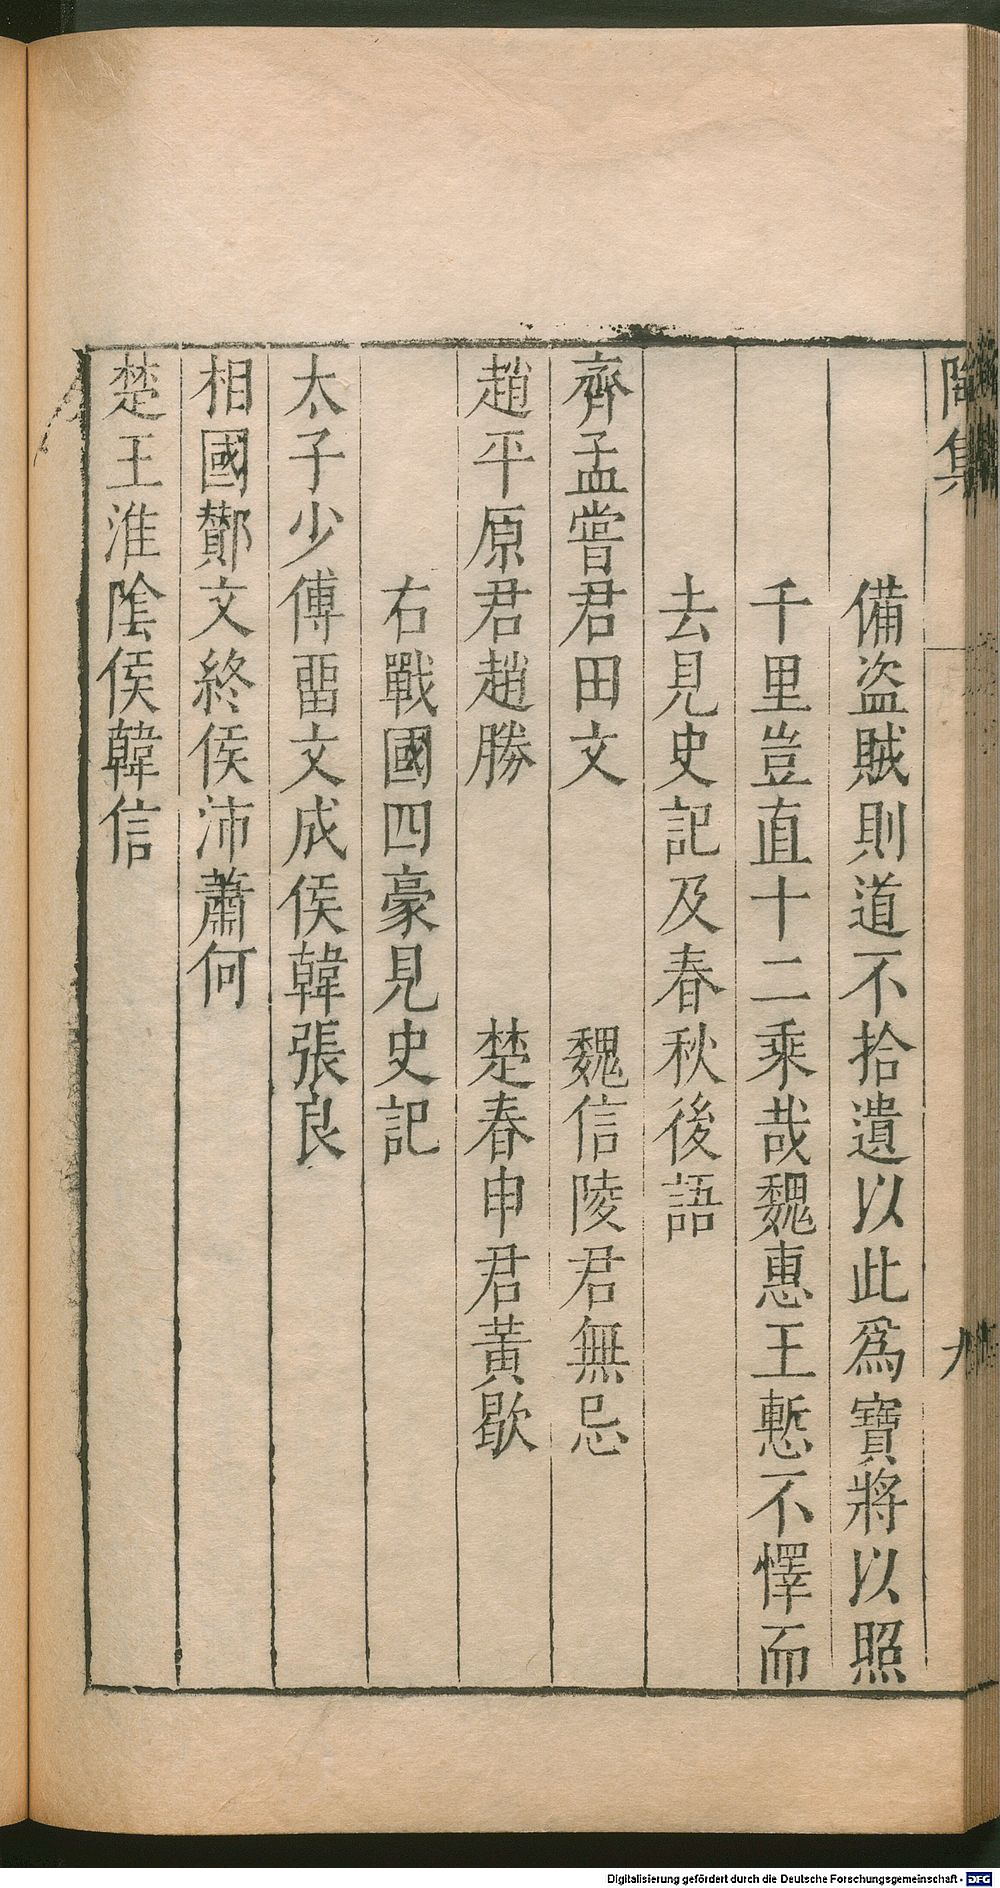 陶集
九
備盗賊則道不拾遺以此為寶將以照
千里豈直十二乘哉魏惠王慙不懌而
去見史記及春秋後語
齊孟嘗君田文　魏信陵君無忌
趙平原君趙勝　楚春申君黃歇
右戰國四豪見史記
太子少傅畱文成侯韓張良
相國酇文終侯沛蕭何
楚王淮陰侯韓信
Digitalisierung gefördert durch die Deutsche Forschungsgemeinschaft - DFG